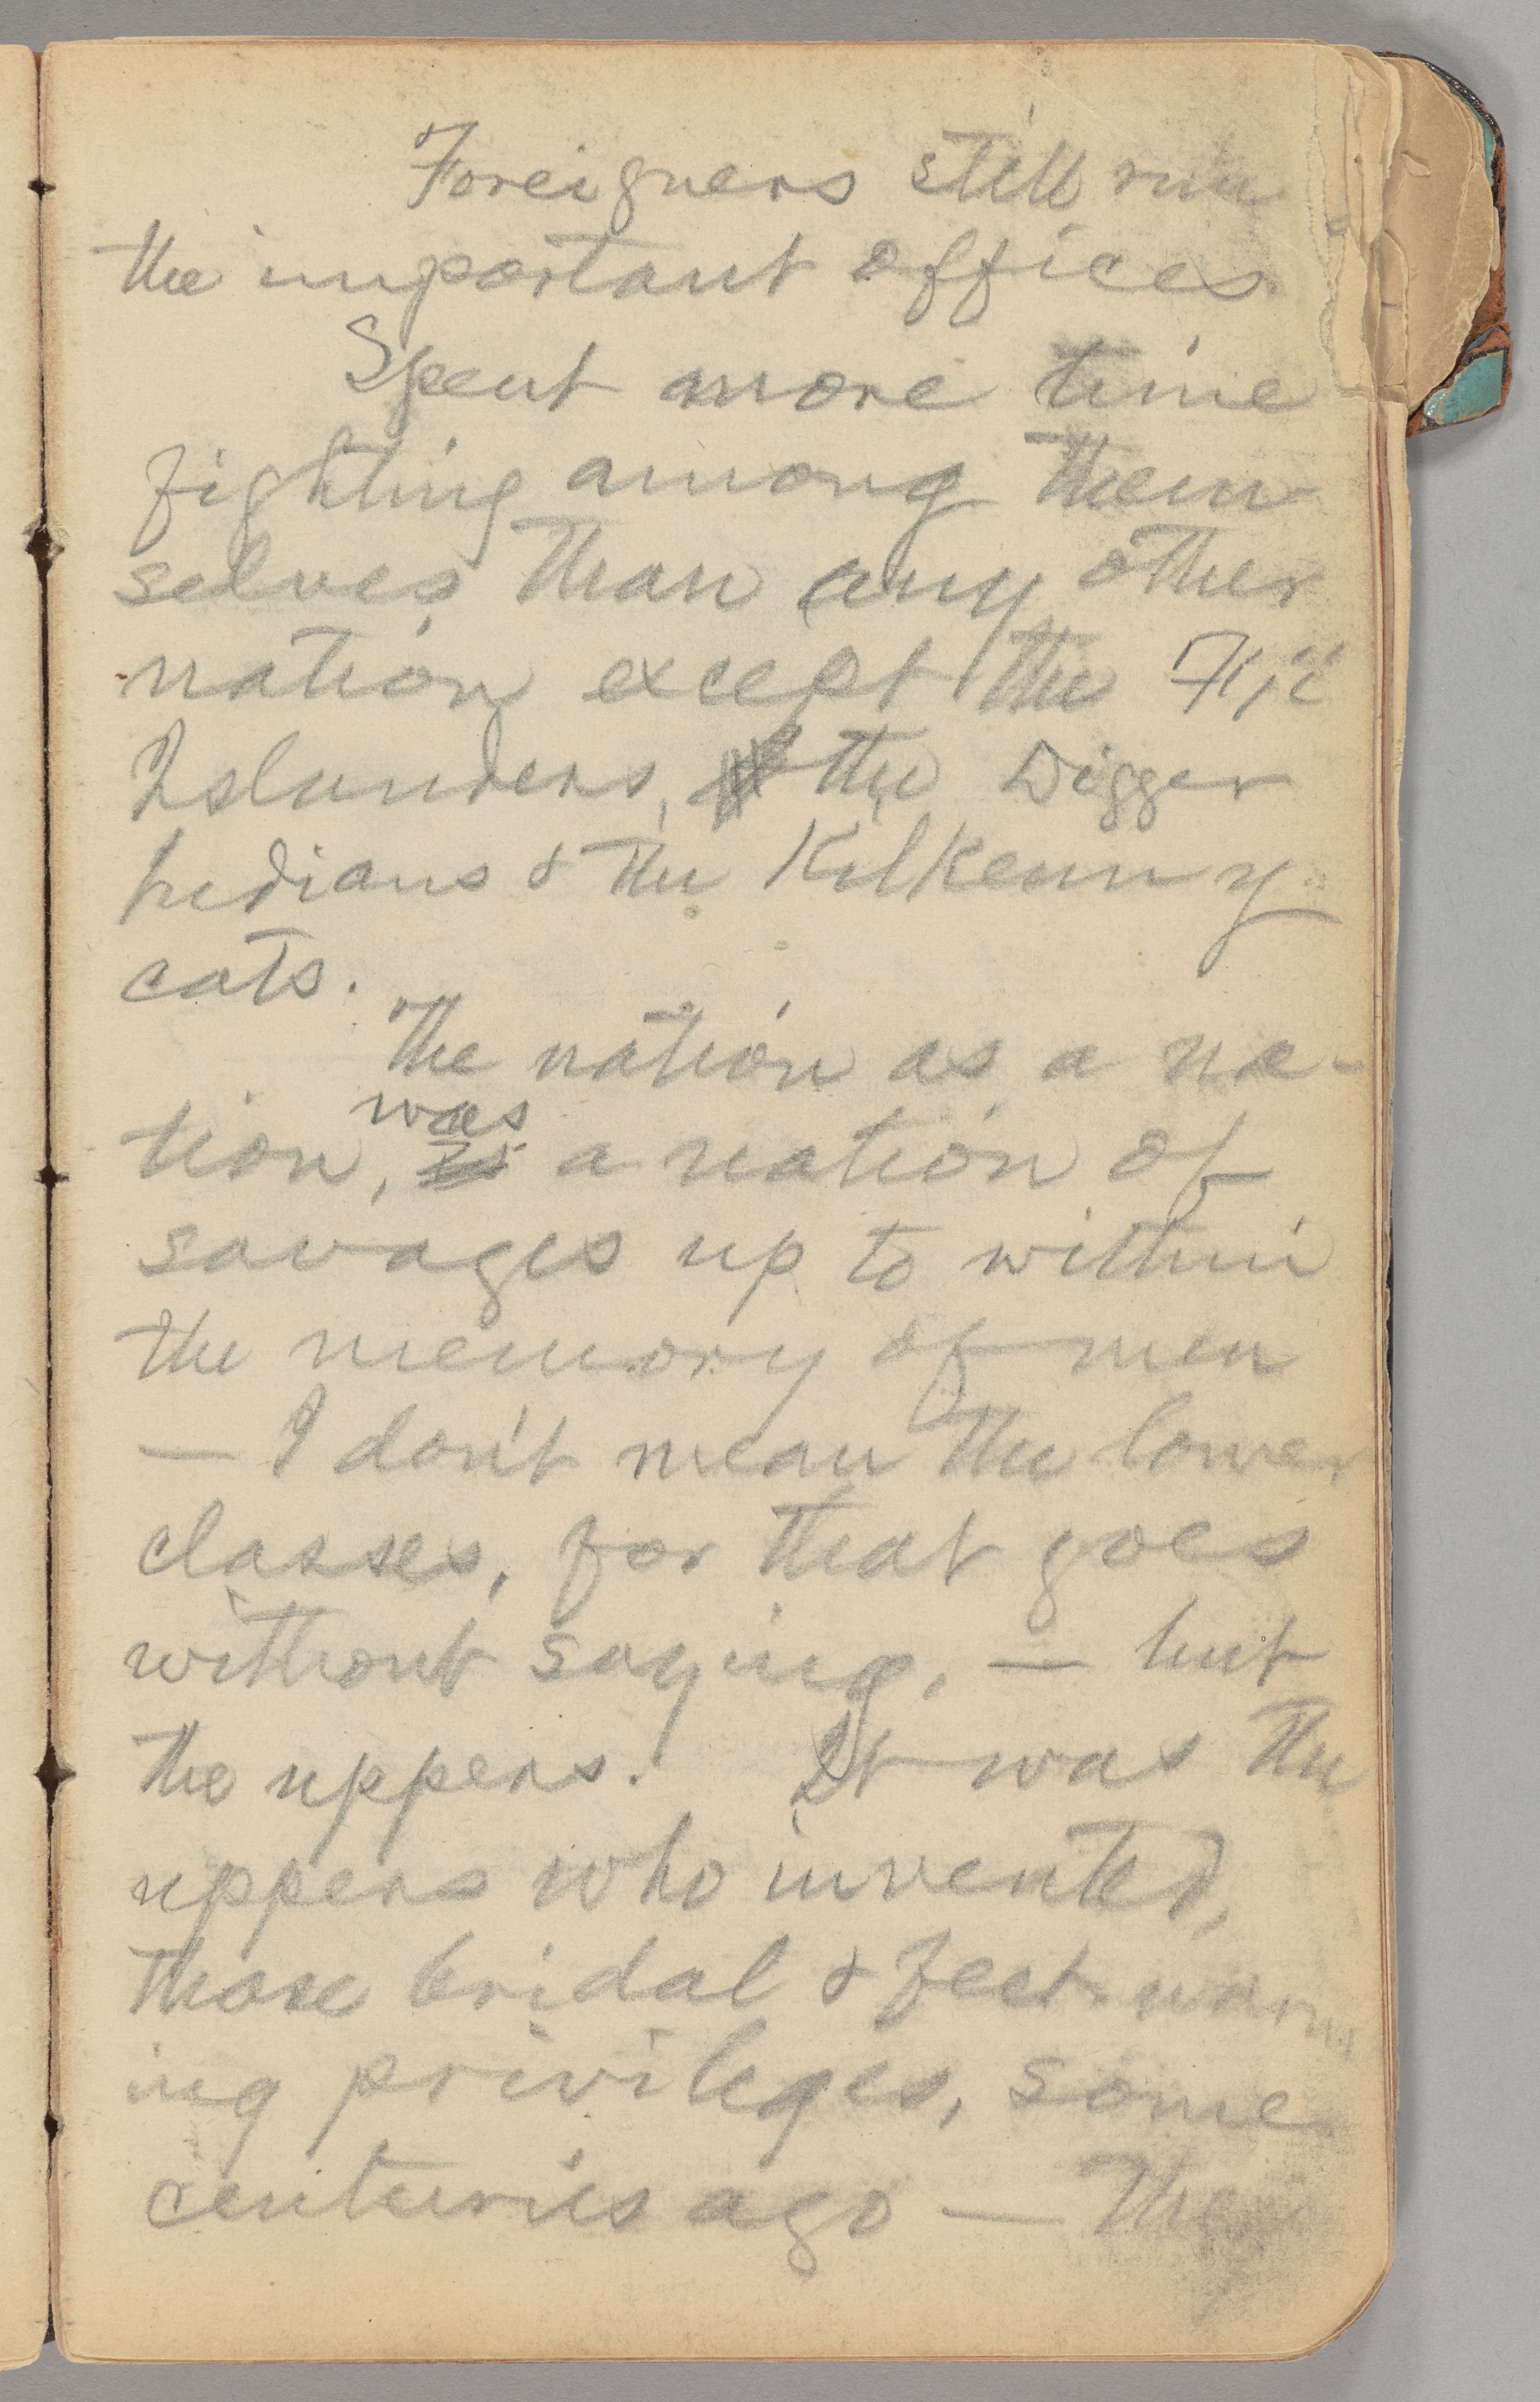 Foreigners still run
the important offices.
Spent more time
fighting among them-
selves than any other
nation except the Fiji
Islanders, the Digger
Indians & the Kilkenny
cats.
The nation as a na-
was
tion, is a nation of
savages up to within
the memory of men
— I don't mean the lower
classes, for that goes
without saying, — but
the uppers. It was the
uppers who invented,
those bridal & feet-warm
ing privileges, some
centuries ago — The